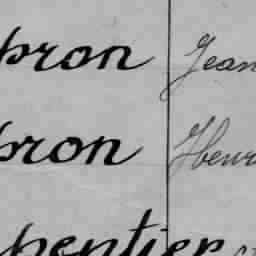 pron Jean
pron Henri
pentier